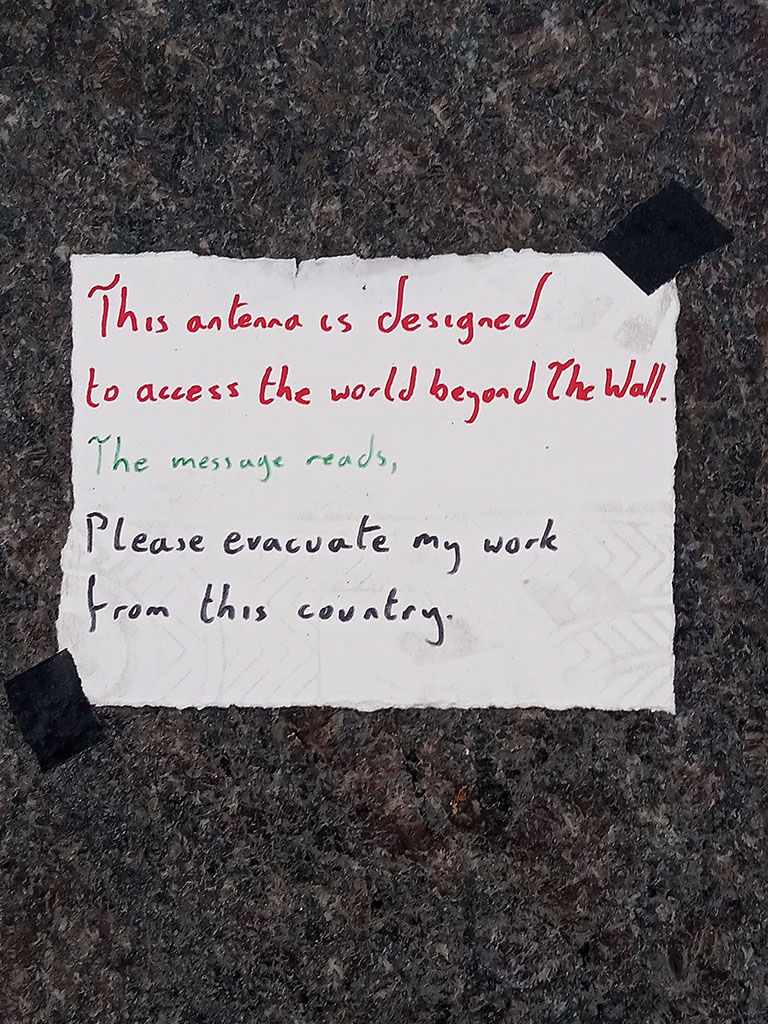 This antenna is designed
to access the world beyond The Wall.
The message reads,
Please evacuate my work
from this country.